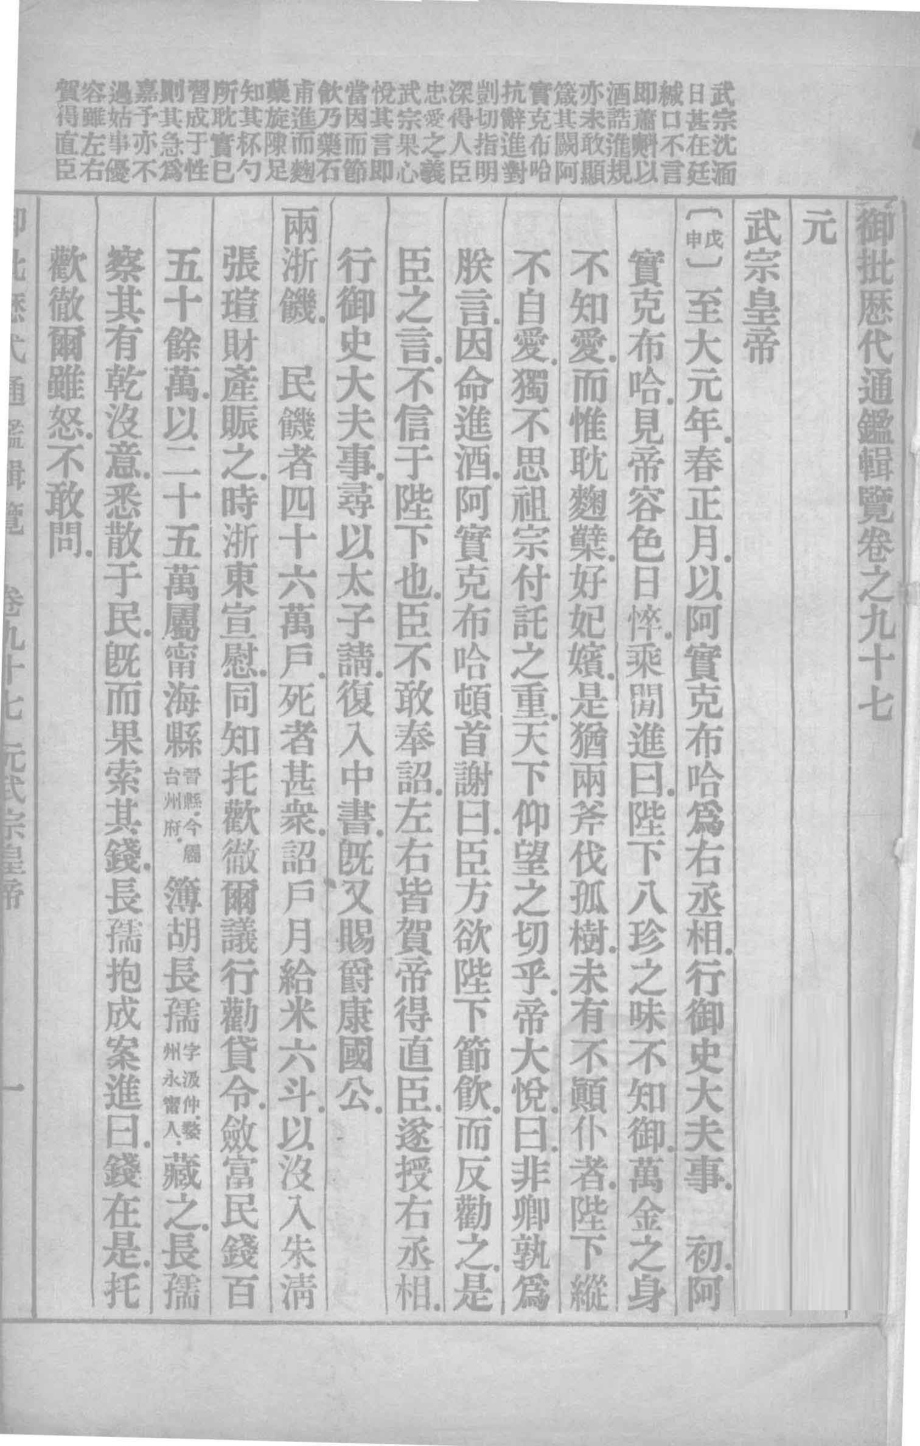 武宗沈湎
日甚在廷
緘口不言
即蕭㪺以
酒誥進規
亦未敢顯
箴其闕阿
實克布哈
抗辭進對
剴切指明
深得人臣
忠愛之義
武宗果心
悅其言即
當因而節
飲乃藥石
甫進而麴
糵旋陳足
知其杯勺
所耽實已
習成于性
則其急爲
嘉予亦不
過姑事優
容雖左右
賀得直臣
御批歷代通鑑輯覽卷之九十七
元
武宗皇帝
〔戊申〕至大元年.春正月.以阿實克布哈爲右丞相.行御史大夫事. 初.阿
實克布哈.見帝容色日悴.乘閒進曰.陛下八珍之味不知御.萬金之身
不知愛.而惟耽麴糵.好妃嬪.是猶兩斧伐孤樹.未有不顚仆者.陛下縱
不自愛.獨不思祖宗付託之重.天下仰望之切乎.帝大悅.曰.非卿孰爲
朕言.因命進酒.阿實克布哈頓首謝曰.臣方欲陛下節飲.而反勸之.是
臣之言.不信于陛下也.臣不敢奉詔.左右皆賀帝得直臣.遂授右丞相.
行御史大夫事.尋以太子請.復入中書.既又賜爵康國公.
兩浙饑. 民饑者四十六萬戶.死者甚衆.詔戶月給米六斗.以沒入朱淸
張瑄財產賑之.時浙東宣慰.同知托歡徹爾議行勸貸令.斂富民錢百
五十餘萬.以二十五萬屬甯海縣晉縣.今屬台州府.簿胡長孺字汲仲.婺州永甯人.藏之.長孺
察其有乾沒意.悉散于民.既而果索其錢.長孺抱成案進曰.錢在是.托
歡徹爾雖怒.不敢問.
御批歷代通鑑輯覽 卷九十七 元武宗皇帝 一